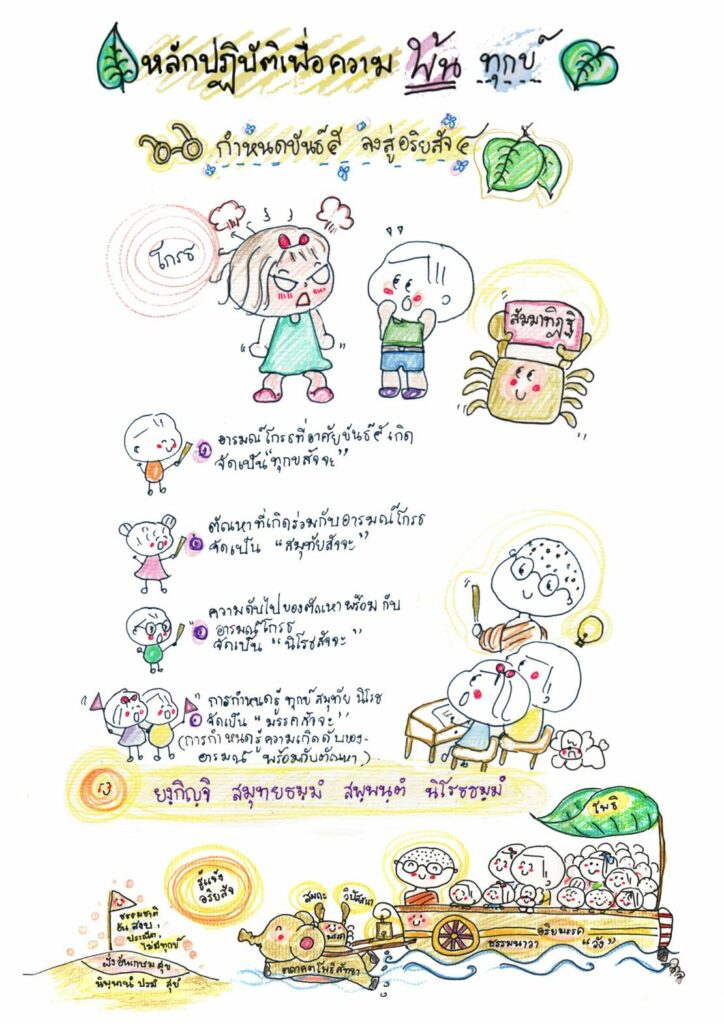 หลักปฏิบัติเพื่อความ พ้น ทุกข์
กำหนดขันธ์๕ ลงสู่อริยสัจ๔
โกรธ
สัมมาทิฏฐิ
๑ อารมณ์โกรธที่อาศัยขันธ์๕ เกิด
จัดเป็น "ทุกขสัจจะ"
๒ ตัณหาที่เกิดร่วมกับอารมณ์โกรธ
จัดเป็น "สมุทัยสัจจะ"
๓ ความดับไปของตัณหาพร้อมกับ
อารมณ์โกรธ
จัดเป็น "นิโรธสัจจะ"
๔ การกำหนดรู้ ทุกข์ สมุทัย นิโรธ
จัดเป็น "มรรคสัจจะ"
(การกำหนดรู้ความเกิดดับของ
อารมณ์ พร้อมกับตัณหา)
ยงฺกิญฺจิ สมุทยธมฺมํ สพฺพนฺตํ นิโรธธมฺมํ
โพธิ
รู้แจ้ง
อริยสัจ
สมถะ วิปัสสนา
ธรรมชาติ
อัน สงบ,
ปราณีต,
ไม่มีทุกข์
ฝั่งอันเกษม สุข
นิพพานํ ปรมํ สุขํ
มรรค
ตถาคตโพธิสัทธา
อริยมรรค
ธรรมนาวา "วัง"